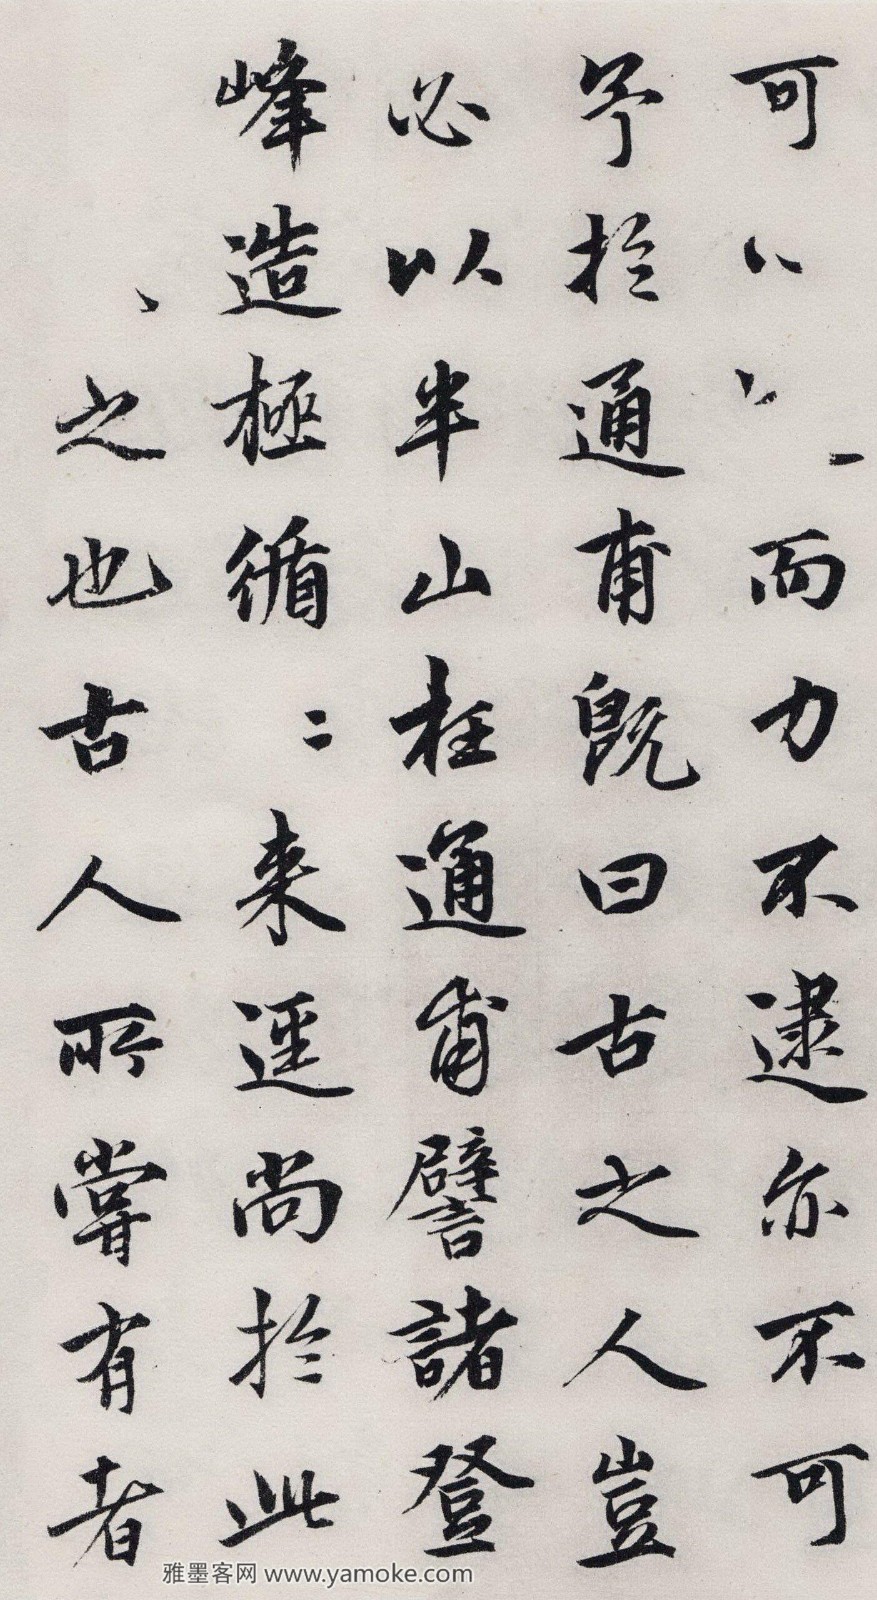 可 而力不逮亦不可
予於通甫既曰古之人豈
必以半山枉通甫譬諸登
峰造極循〻來逕尚於此
之也古人所嘗有者
雅墨客网 www.yamoke.com